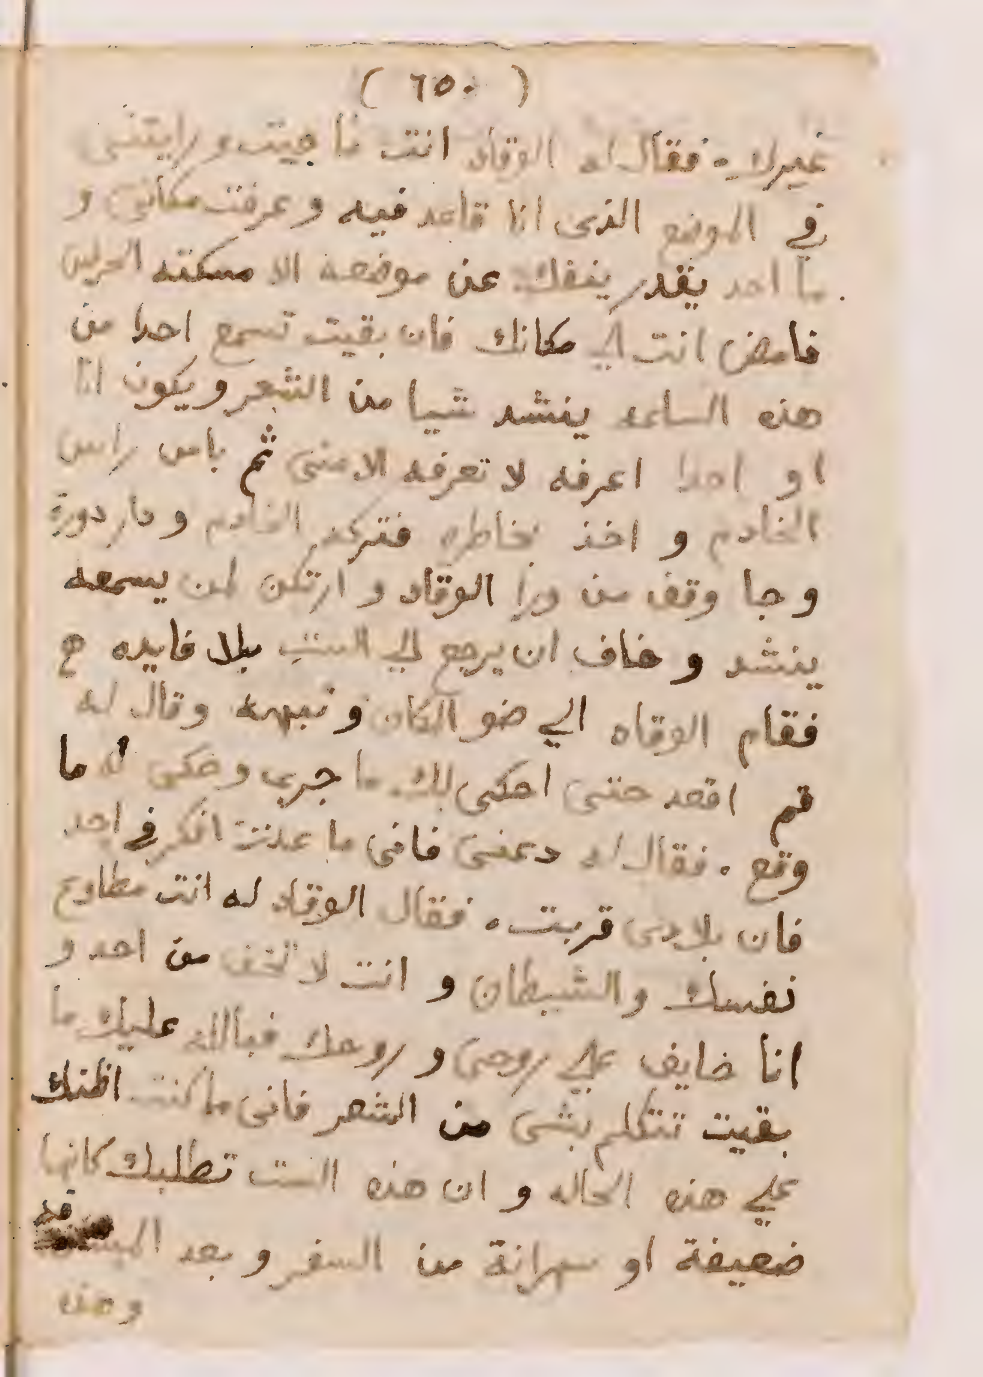 ( ٦٥٠ )
غيرك. فقال له الوقاد انت ما جيت و رايتنى
في الموضع الذى انا قاعد فيه و عرفت مكانى و
ما احد يقدر ينفك عن موضعه الا مسكته الحرس
فامض انت الي مكانك فان بقيت تسمع احدا من
هذه الساعه ينشد شيا من الشعر و يكون انا
او احدا اعرفه لا تعرفه الا منى ثم باس راس
الخادم و اخذ بخاطره فتركه الخادم و دار دورة
و جا وقف من ورا الوقاد و ارتكن لمن يسمعه
ينشد و خاف ان يرجع الي الست بلا فايده
فقام الوقاد الي ضو المكان و نبهه و قال له
قم اقعد حتى احكى لك ما جرى و حكى له ما
وقع . فقال له دعنى فانى ما عدت افكر في احد
فان بلادى قربت. فقال الوقاد له انت مطاوع
نفسك والشيطان و انت لا تخف من احد و
انا خايف علي روحى و روحك فبالله عليك ما
بقيت تتكلم بشى من الشعر فانى ما كنت اظنك
علي هذه الحاله و ان هذه الست تطلبك كانها
ضعيفة او سهرانة من السفر و بعد
وهذه